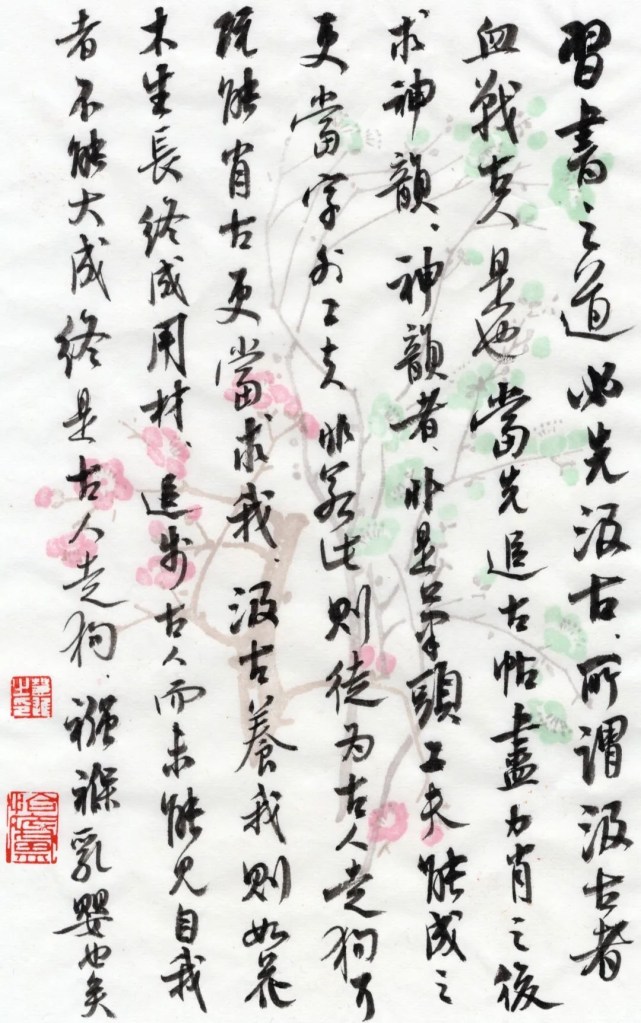 習書之道必先汲古、所謂汲古者
血戰古人是也當先追古帖盡力肖之後
求神韻、神韻者、非是筆頭工夫能成之
更當字外工夫非若此則徒为古人走狗耳
既能肖古更當求我、汲古養我則如花
木生長終成用材、追步古人而未能見自我
者不能大成終是古人走狗、襁褓乳嬰也矣